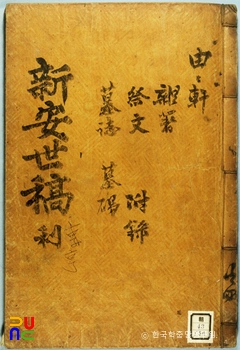 由〻軒
雜著
祭文 附錄
墓誌 墓碣
新安世稿 利
© 한국학중앙연구원